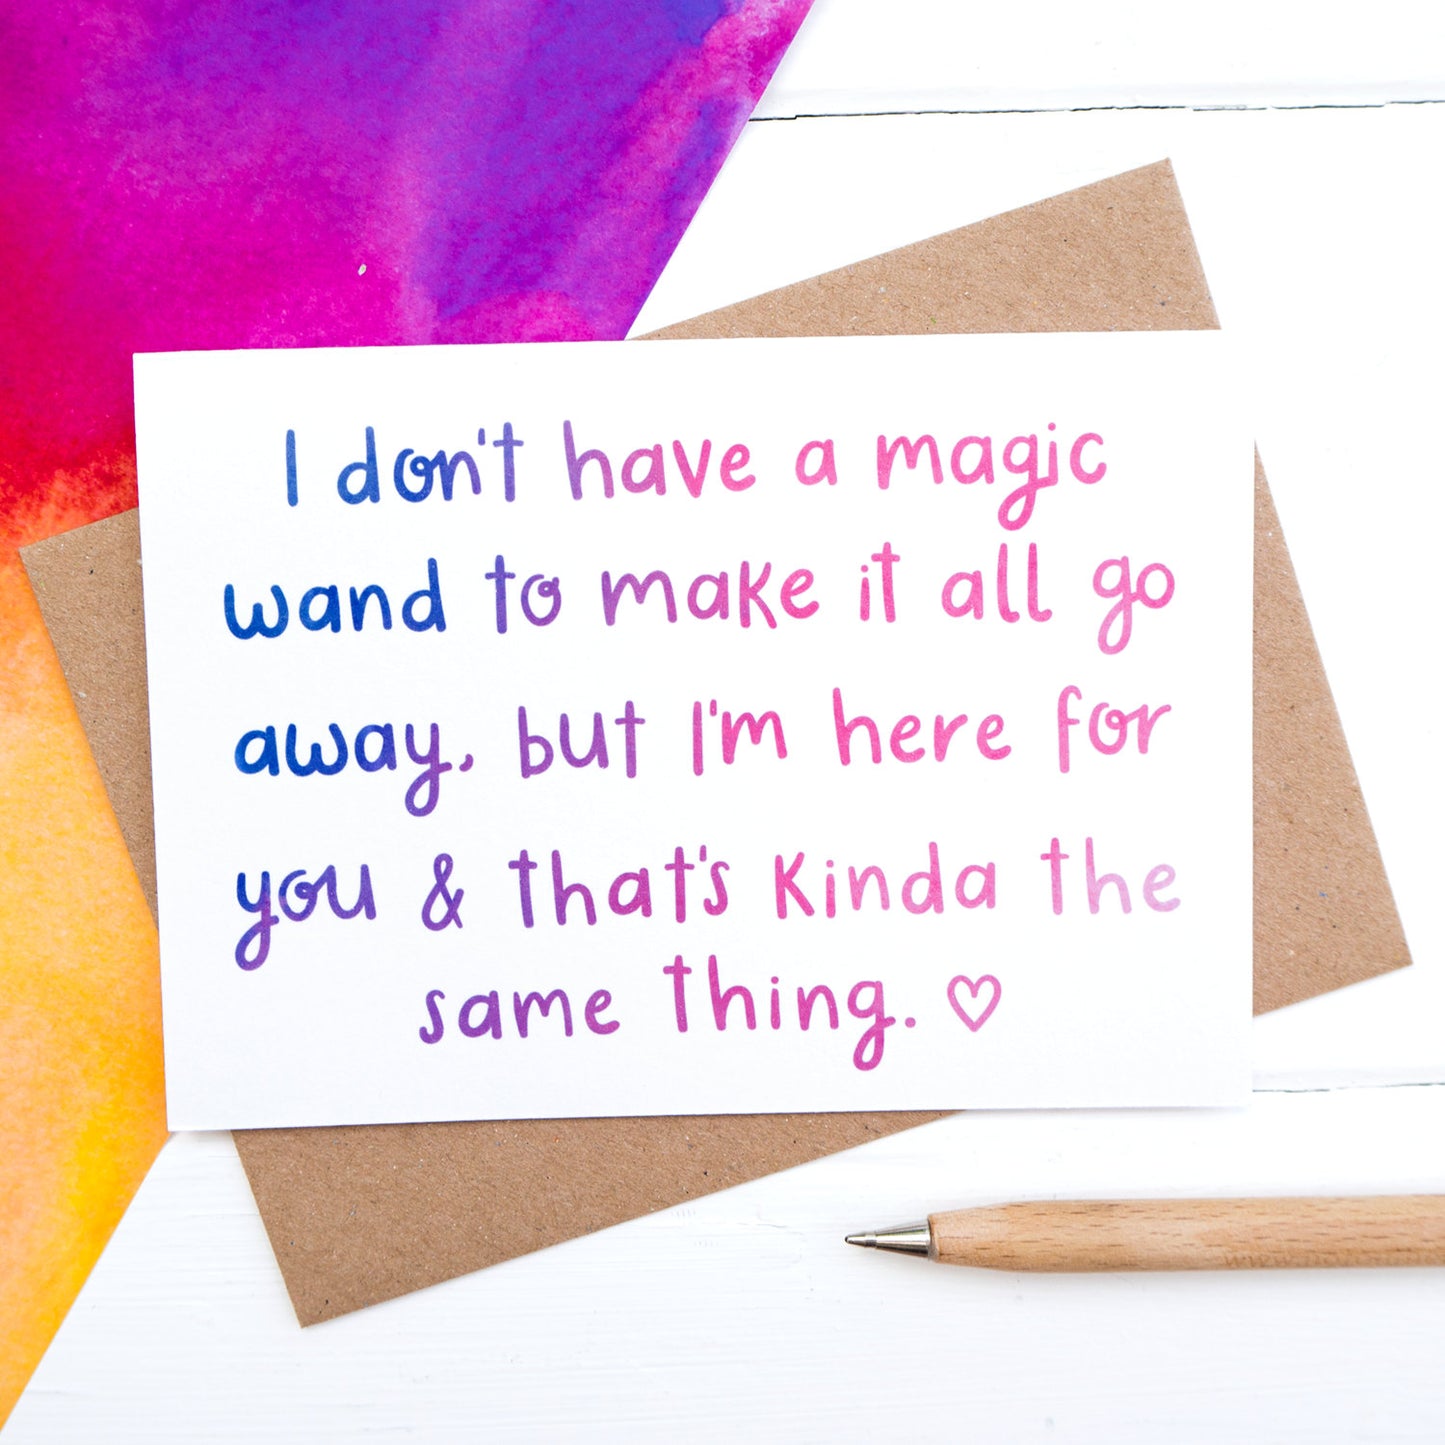 I don't have a magic
wand to make it all go
away, but I'm here for
you & that's kinda the
same thing. ♡